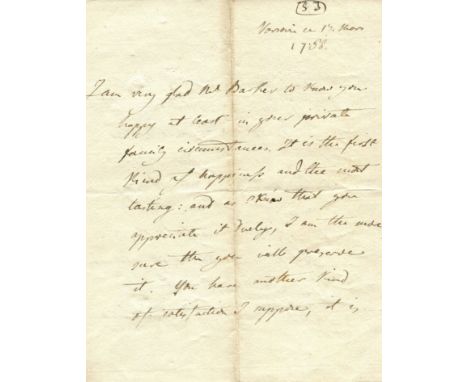 53
ce 13 Mars
1788.
I am very glad Mr Barker to know you
happy at least in your private
family circumstances. It is the first
Kind of happiness and the most
lasting: and as I know that you
appreciate it duely, I am the more
sure the you will preserve
it. You have another Kind
of satisfaction I suppose, it is